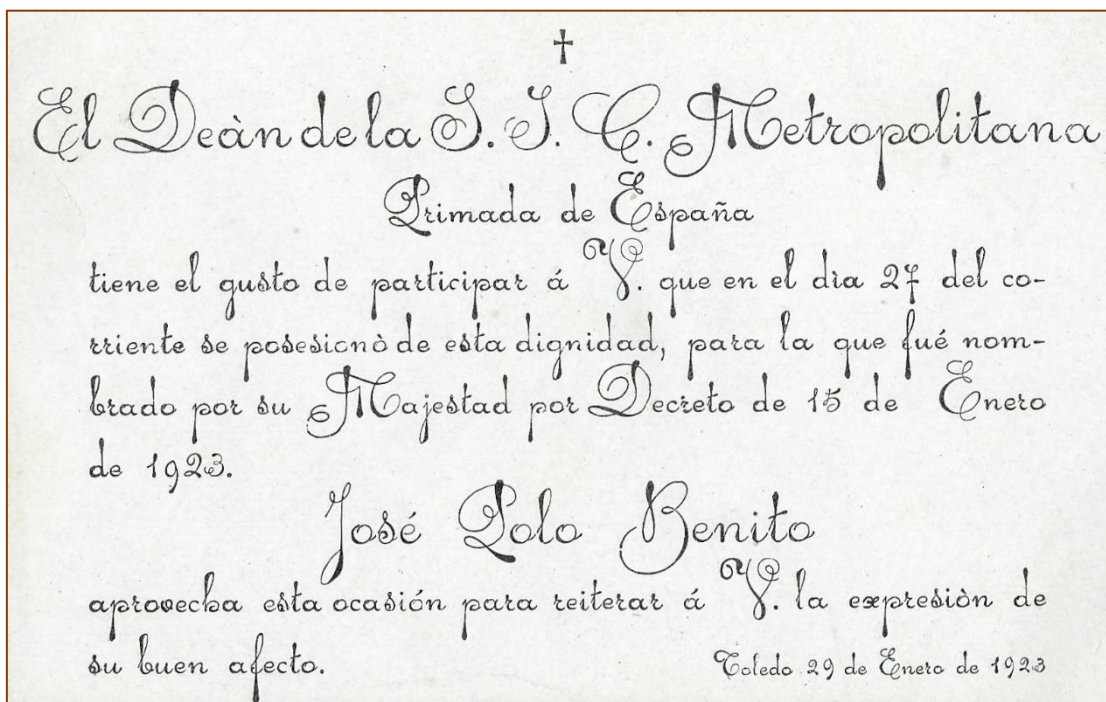 †
El Deàn de la S. I. C. Metropolitana
Primada de España
tiene el gusto de participar á V. que en el dia 27 del co-
rriente se posesionò de esta dignidad, para la que fué nom-
brado por su Majestad por Decreto de 15 de Enero
de 1923.
José Polo Benito
aprovecha esta ocasión para reiterar á V. la expresiòn de
su buen afecto.
Toledo 29 de Enero de 1923